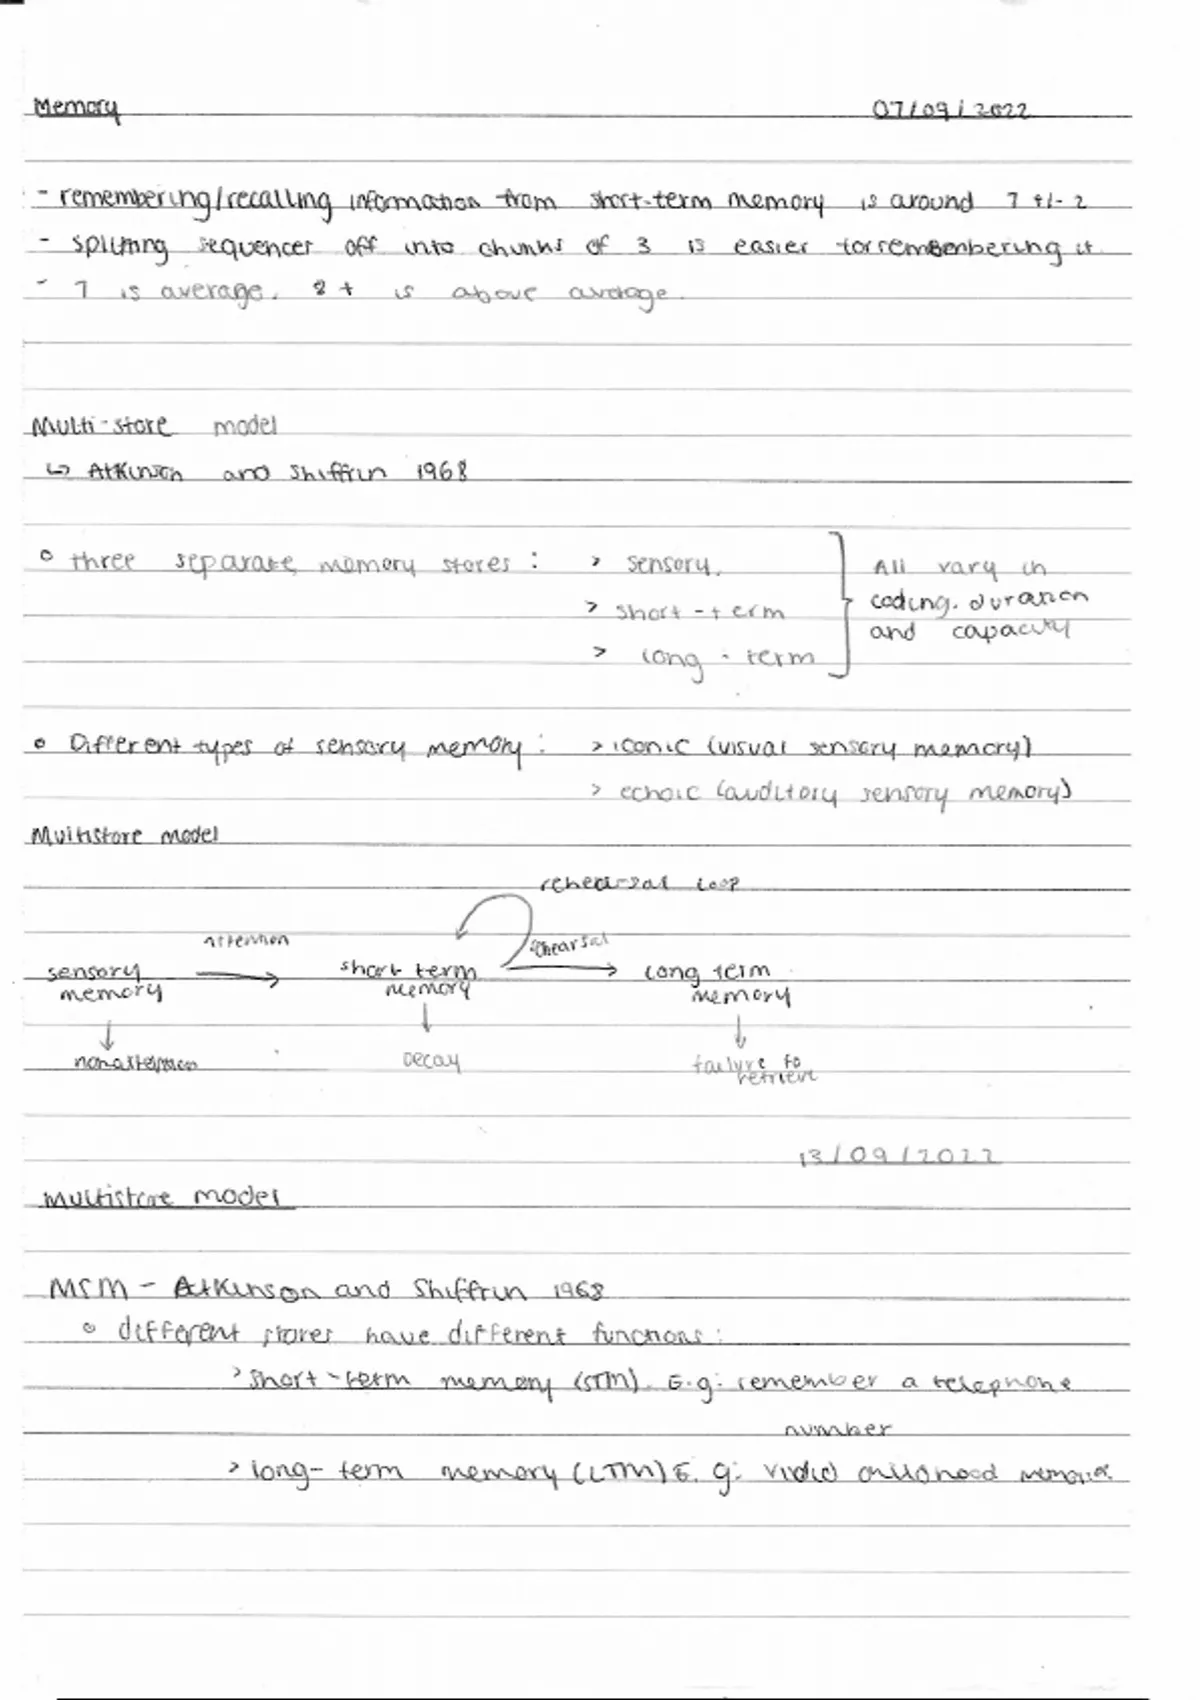 Memory 07/09/2022
- remembering/recalling information from short-term memory is around 7 +/- 2
- splitting sequences off into chunks of 3 is easier for remembering it.
- 7 is average. 8+ is above average.
Multi-store model
↳ Atkinson and Shiffrin 1968
o three separate memory stores: > sensory. All vary in
> short-term coding, duration
and capacity
> long-term
o Different types of sensory memory: > iconic (visual sensory memory)
> echoic (auditory sensory memory)
Multistore model
rehearsal loop
attention rehearsal
sensory → short term → long term
memory memory memory
↓ ↓ ↓
non attention Decay failure to
retrieve
13/09/2022
Multistore model
MSM - Atkinson and Shiffrin 1968
o different stores have different functions:
> short-term memory (STM). E.g: remember a telephone
number
> long-term memory (LTM) E.g: vivid childhood memories